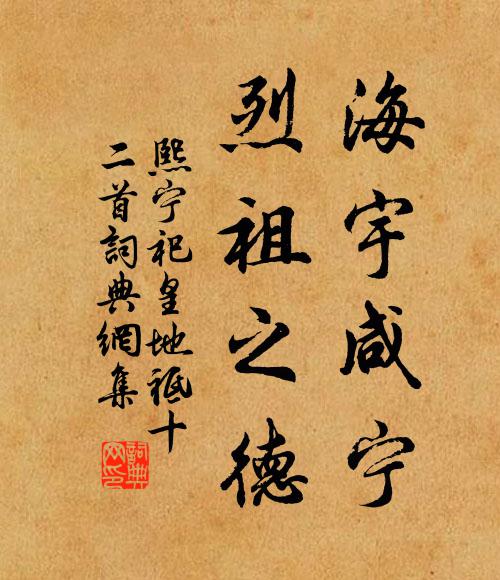 海宇咸宁
烈祖之德
熙宁祀皇地祗十
二首詞典網集
詞典
网印